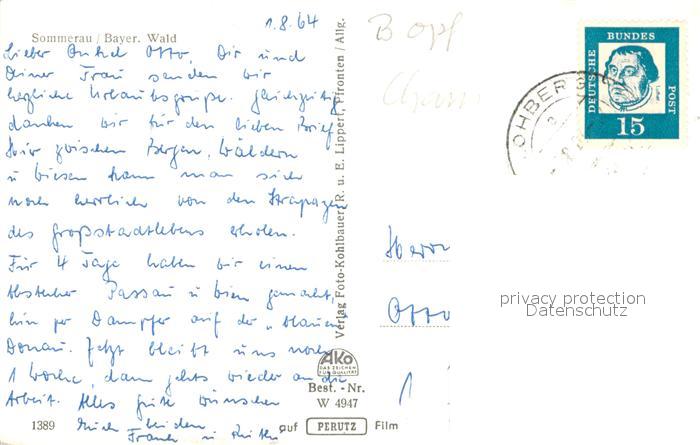 1.8.64
Sommerau / Bayer. Wald
Lieber Onkel Otto, Dir und
Deiner Frau senden wir
herzliche Urlaubsgrüße. Gleichzeitig
danken wir für den lieben Brief.
Hier zwischen Bergen, Wäldern
u Wiesen kann man sich
noch herrlich von den Strapazen
des Großstadtlebens erholen.
Für 4 Tage haben wir einen
Abstecher Passau u Wien gemacht,
hin per Dampfer auf der "blauen
Donau. Jetzt bleibt uns noch
1 Woche, dann gehts wieder an die
Arbeit. Alles Gute wünschen
Euch beiden
Frank u
1389
Verlag Foto-Kohlbauer, R. u. E. Lippert, Pfronten / Allg.
AKO
DAS ZEICHEN
FÜR QUALITÄT
Best. - Nr.
W 4947
auf PERUTZ Film
B opf
Cham
DEUTSCHE BUNDES POST
15
LOHBERG
Herrn
Otto
privacy protection
Datenschutz